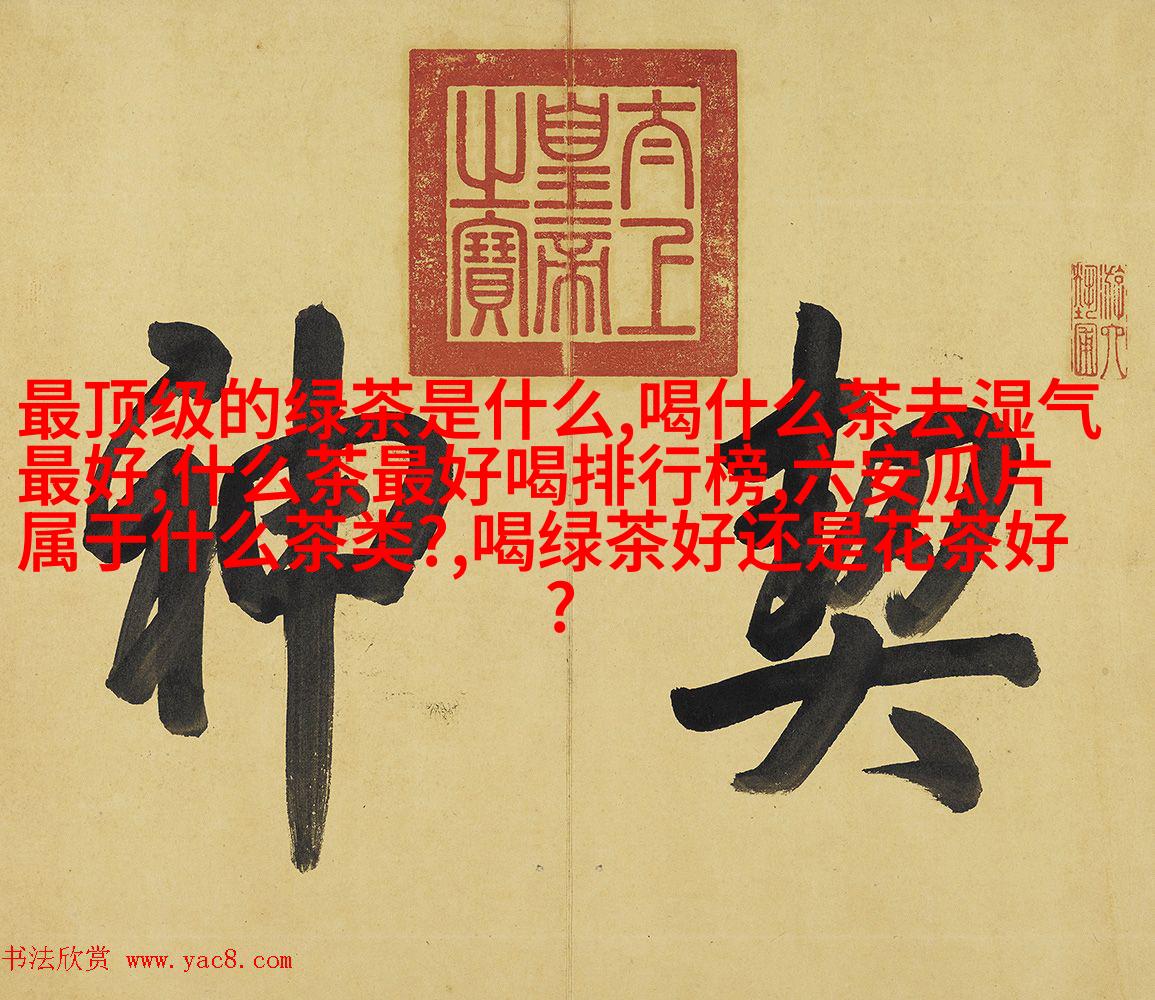 太上
皇帝
之寶
游六
藝圃
契神
最顶级的绿茶是什么,喝什么茶去湿气
最好,什么茶最好喝排行榜,六安瓜片
属于什么茶类?,喝绿茶好还是花茶好
?
书法欣赏 www.yac8.com